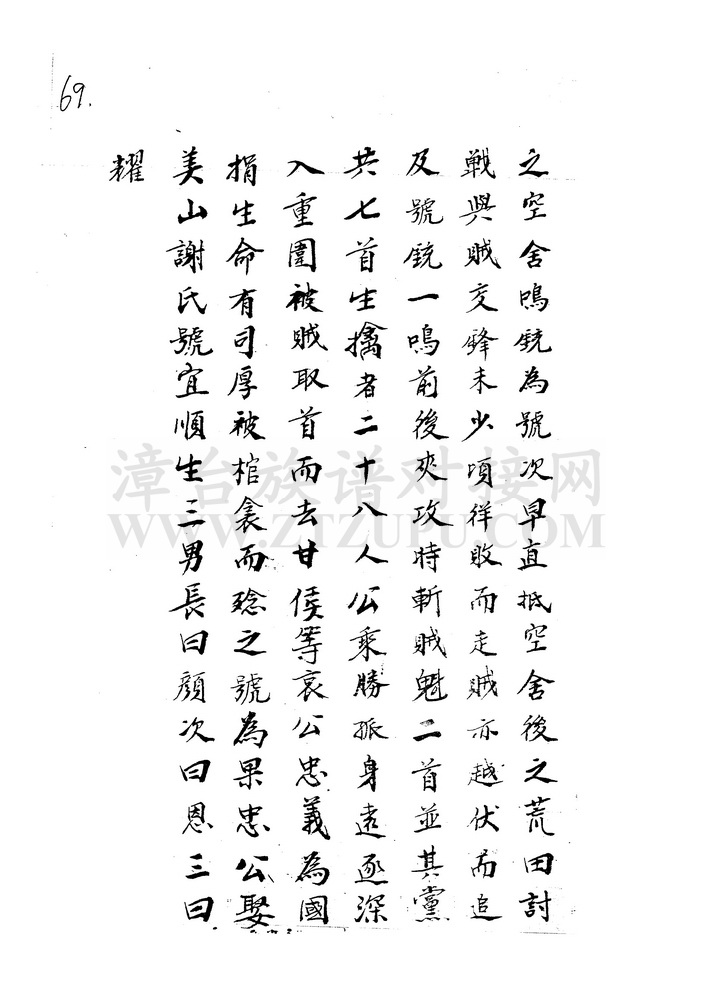 69.
之空舍鳴銃為號次早直抵空舍後之荒田討
戰與賊交鋒未少頃徉敗而走賊亦越伏而追
及號銃一鳴前後夾攻時斬賊魁二首並其黨
共七首生擒者二十八人公乘勝孤身遠逐深
入重圍被賊取首而去甘侯等哀公忠義為國
捐生命有司厚被棺衾而殮之號為果忠公娶
美山謝氏號宜順生三男長曰顏次曰恩三曰
耀
漳台族谱对接网
WWW.ZTZUPU.COM